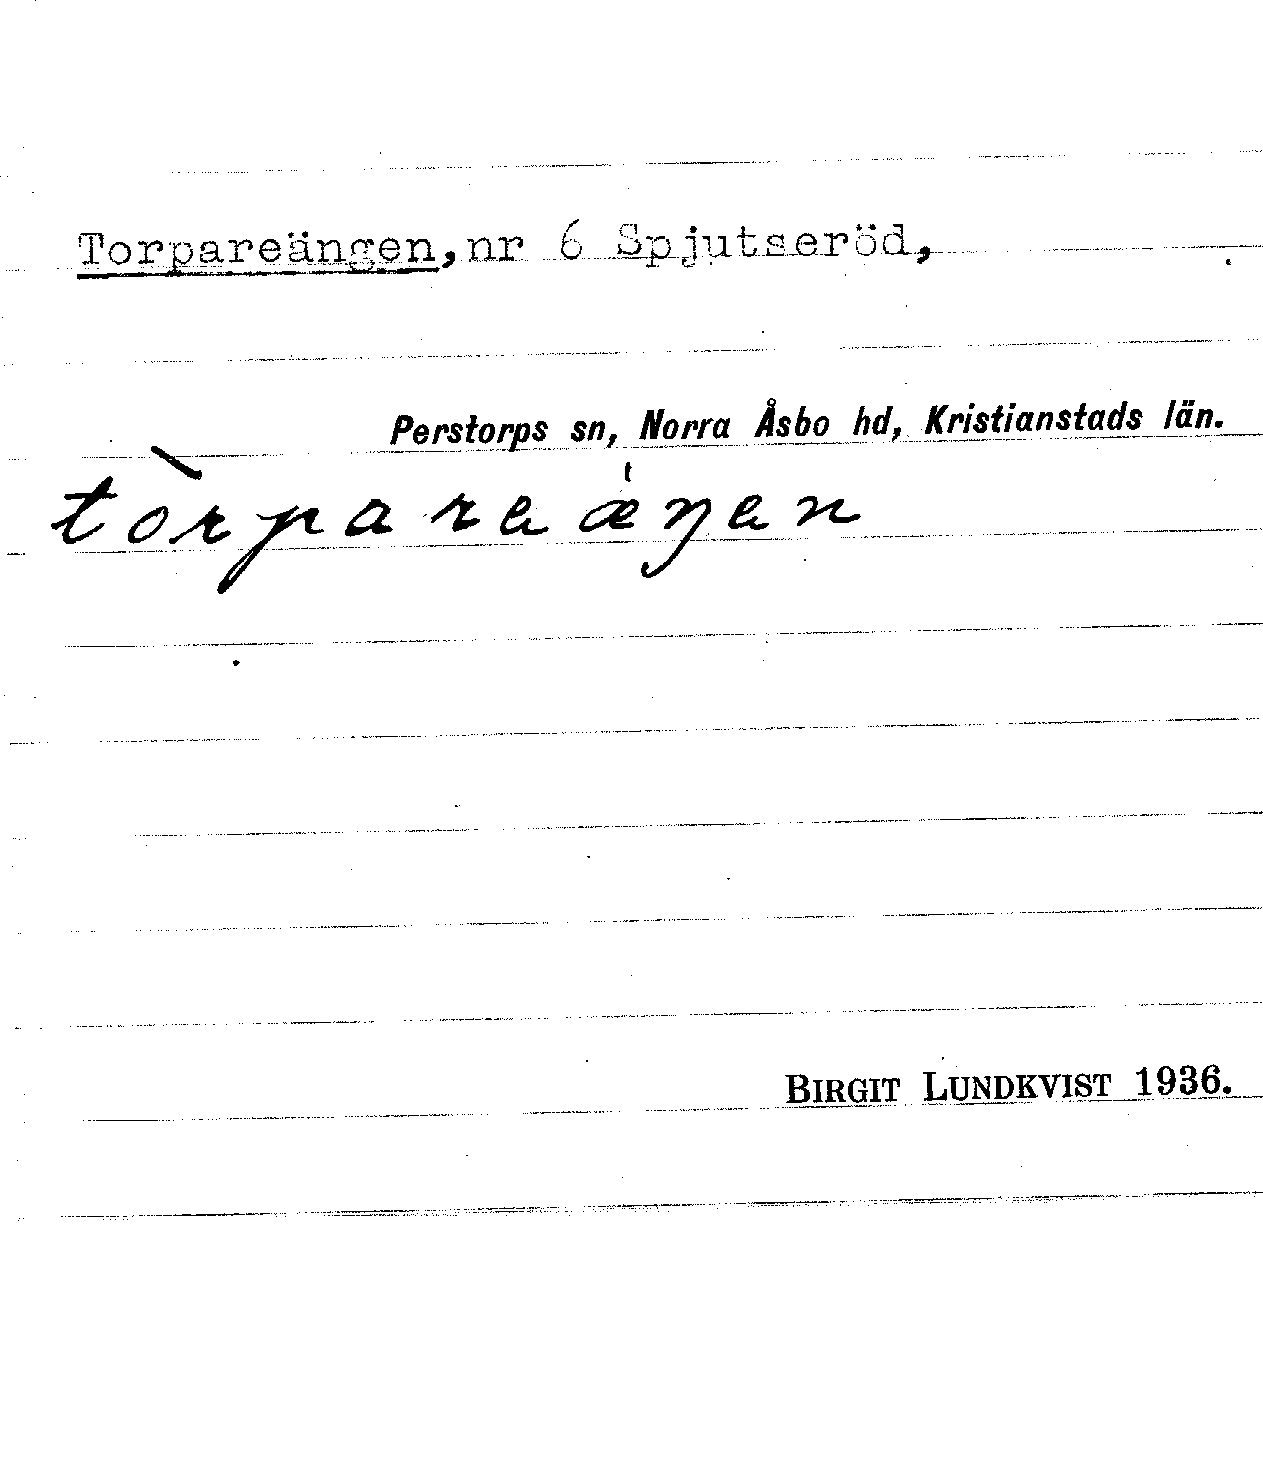 Torpareängen, nr 6 Spjutseröd,
Perstorps sn, Norra Åsbo hd, Kristianstads län.
tòrpareæ̍ŋen
BIRGIT LUNDKVIST 1936.